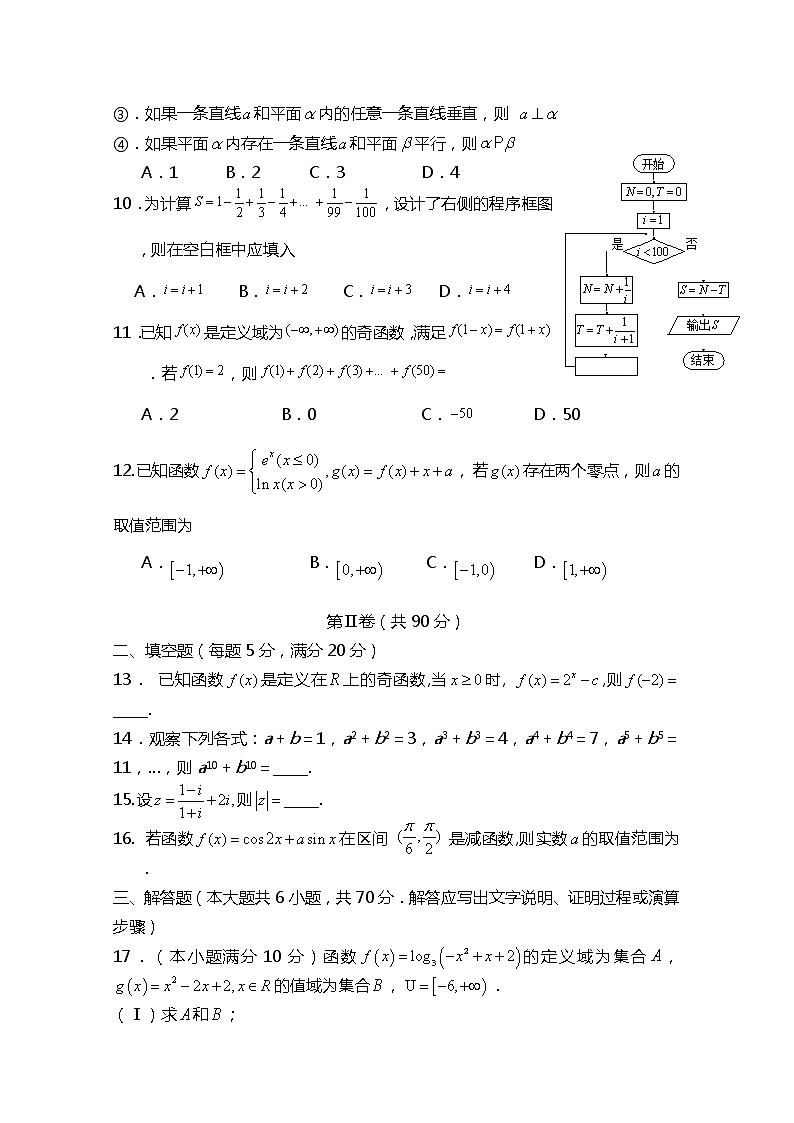 ③.如果一条直线a和平面α内的任意一条直线垂直，则 a⊥α
④.如果平面α内存在一条直线a和平面β平行，则αPβ
A.1 B.2 C.3 D.4
10.为计算S=1-1/2+1/3-1/4+…+1/99-1/100，设计了右侧的程序框图
，则在空白框中应填入
A.i=i+1 B.i=i+2 C.i=i+3 D.i=i+4
开始
N=0,T=0
i=1
是 i<100 否
N=N+1/i
S=N-T
T=T+1/(i+1)
输出S
结束
11.已知f(x)是定义域为(-∞,+∞)的奇函数,满足f(1-x)=f(1+x)
.若f(1)=2，则f(1)+f(2)+f(3)+…+f(50)=
A.2 B.0 C.-50 D.50
12.已知函数f(x)={e^x(x≤0) ln x(x>0),g(x)=f(x)+x+a，若g(x)存在两个零点，则a的
取值范围为
A.[-1,+∞) B.[0,+∞) C.[-1,0) D.[1,+∞)
第Ⅱ卷（共90分）
二、填空题（每题5分，满分20分）
13. 已知函数f(x)是定义在R上的奇函数,当x≥0时, f(x)=2^x-c,则f(-2)=
____.
14.观察下列各式：a+b=1，a²+b²=3，a³+b³=4，a⁴+b⁴=7，a⁵+b⁵=
11，…，则a¹⁰+b¹⁰=____.
15.设z=(1-i)/(1+i)+2i,则|z|=____.
16. 若函数f(x)=cos2x+asin x在区间(π/6,π/2)是减函数,则实数a的取值范围为
.
三、解答题（本大题共6小题，共70分.解答应写出文字说明、证明过程或演算
步骤）
17.（本小题满分10分）函数f(x)=log₃(-x²+x+2)的定义域为集合A，
g(x)=x²-2x+2,x∈R的值域为集合B，U=[-6,+∞).
（Ⅰ）求A和B；